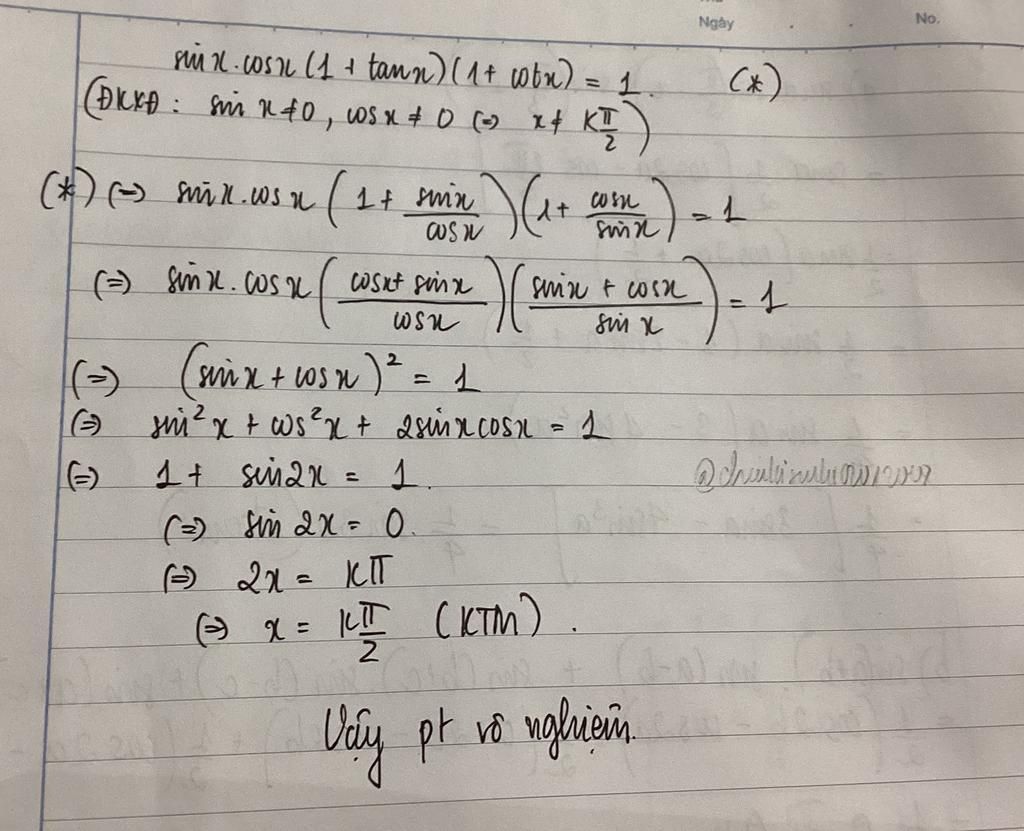 Ngày . . No.
sin x . cos x (1 + tan x)(1 + cot x) = 1. (*)
(ĐKXĐ : sin x ≠ 0, cos x ≠ 0 (=) x ≠ Kπ/2)
(*) (=) sin x . cos x (1 + sin x / cos x)(1 + cos x / sin x) = 1
(=) sin x . cos x ((cos x + sin x) / cos x)((sin x + cos x) / sin x) = 1
(=) (sin x + cos x)² = 1
(=) sin² x + cos² x + 2 sin x cos x = 1
(=) 1 + sin 2x = 1.
(=) sin 2x = 0.
(=) 2x = Kπ
(=) x = Kπ/2 (KTM).
Vậy pt vô nghiệm.